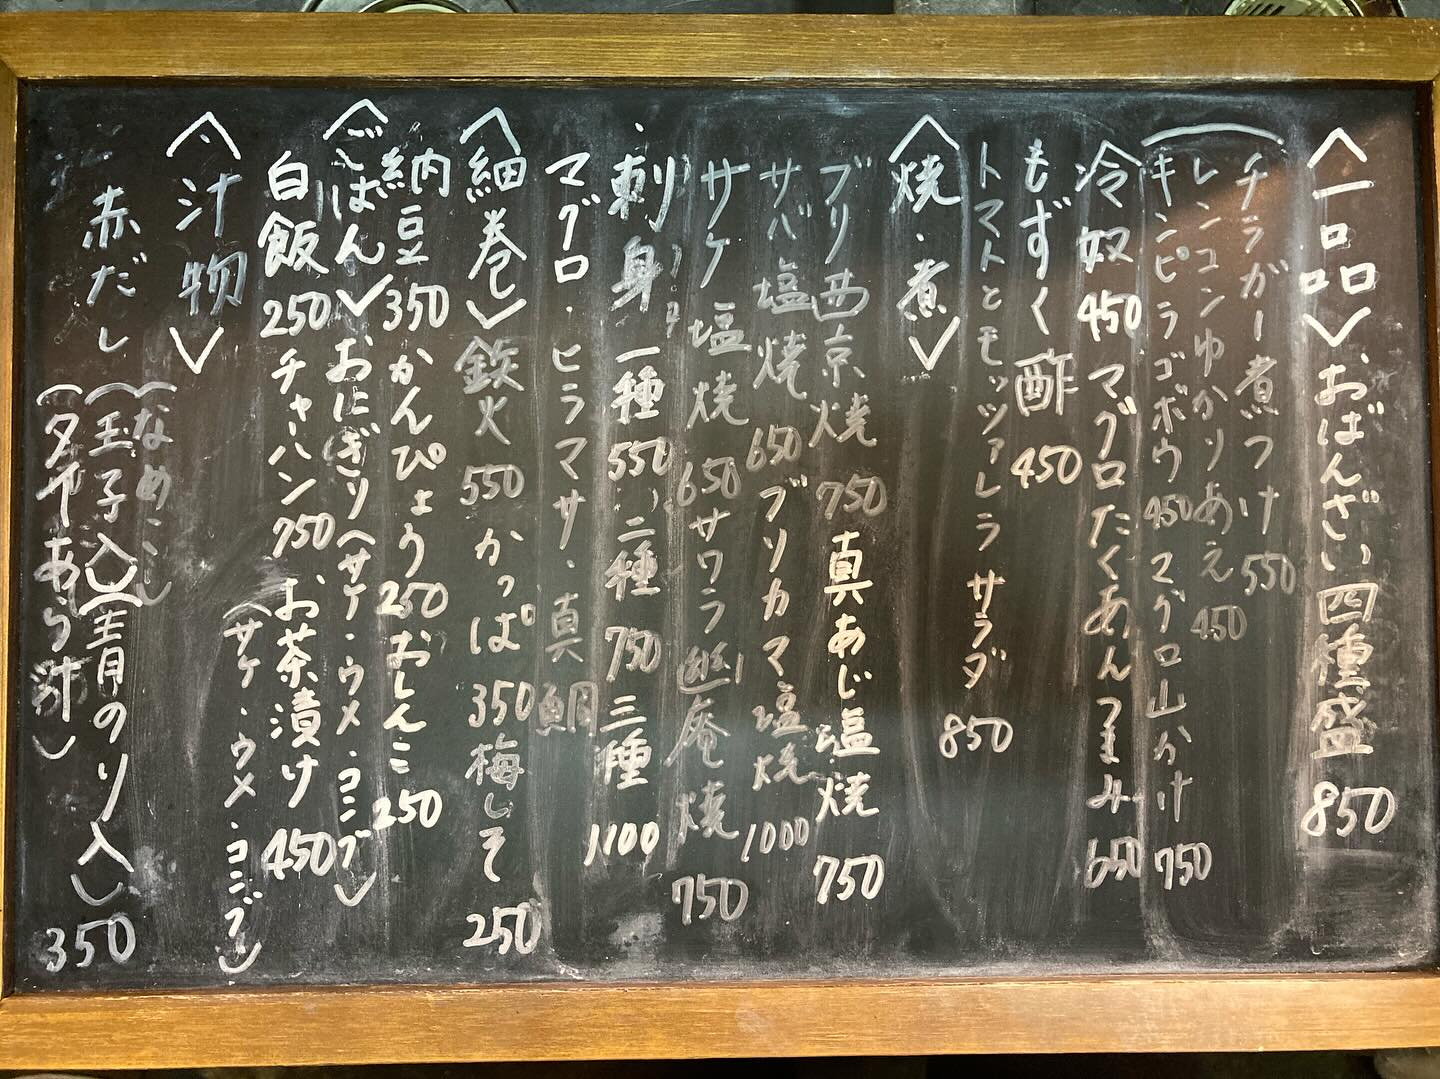 〈一品〉、おばんざい四種盛 850
チラガー煮つけ 550
レンコンゆかりあえ 450
キンピラゴボウ 450 マグロ山かけ 750
冷奴 450 マグロたくあんつまみ 650
もずく酢 450
トマトとモッツァレラ サラダ 850
〈焼・煮〉
ブリ西京焼 750 真あじ塩焼 750
サバ塩焼 650 ブリカマ塩焼 1000
サケ塩焼 650 サワラ幽庵焼 750
・刺身 一種 550、二種 750 三種 1100
マグロ・ヒラマサ・真鯛
〈細巻〉鉄火 550 かっぱ 350 梅しそ 250
納豆 350 かんぴょう 250 おしんこ 250
〈ごはん〉おにぎり〈サケ・ウメ・コンブ〉
白飯 250 チャーハン 750 お茶漬け 450
(サケ・ウメ・コンブ)
〈汁物〉
赤だし (なめこ)
(玉子入) (青のり入) 350
あら汁)